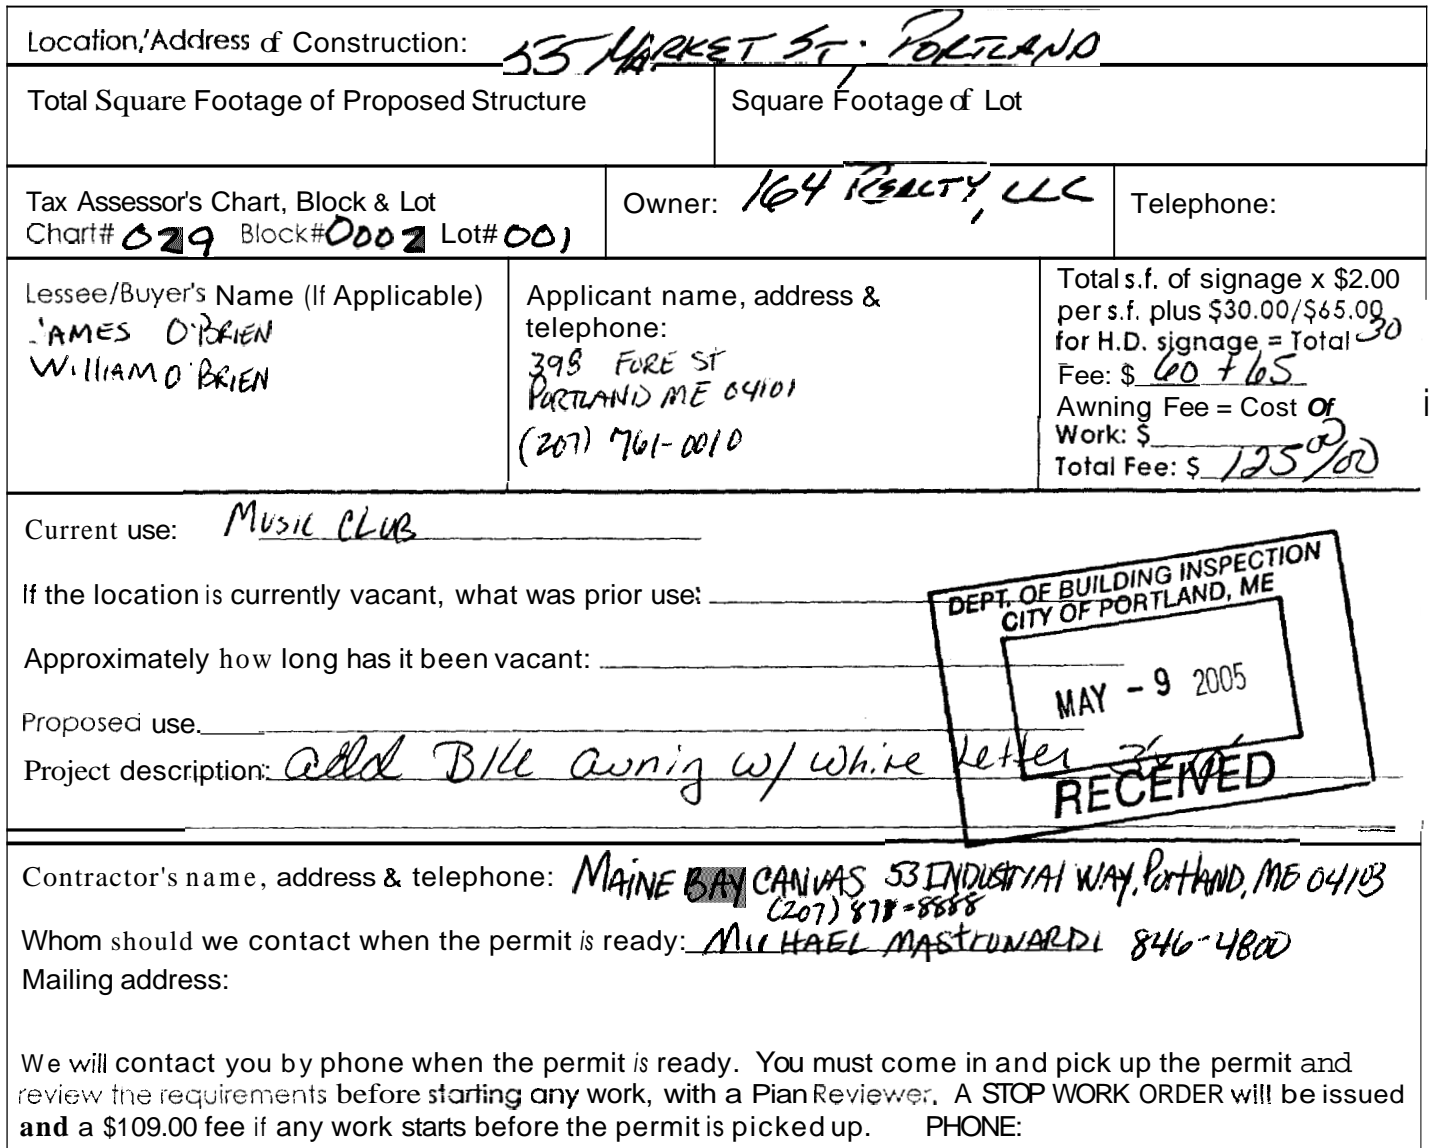 Location/Address of Construction: 55 MARKET ST. PORTLAND
Total Square Footage of Proposed Structure
Square Footage of Lot
Tax Assessor's Chart, Block & Lot
Chart# 029 Block# 0002 Lot# 001
Owner: 164 REALTY, LLC
Telephone:
Lessee/Buyer's Name (If Applicable)
JAMES O'BRIEN
WILLIAM O'BRIEN
Applicant name, address &
telephone:
398 FORE ST
PORTLAND ME 04101
(207) 761-0010
Total s.f. of signage x $2.00
per s.f. plus $30.00/$65.00
for H.D. signage = Total 30
Fee: $ 60 + 65
Awning Fee = Cost of
Work: $
Total Fee: $ 125 00/00
Current use: MUSIC CLUB
If the location is currently vacant, what was prior use:
Approximately how long has it been vacant:
Proposed use.
Project description: add Blk awnig w/ white letter
DEPT. OF BUILDING INSPECTION
CITY OF PORTLAND, ME
MAY - 9 2005
RECEIVED
Contractor's name, address & telephone: MAINE BAY CANVAS 53 INDUSTRIAL WAY, Portland, ME 04103
(207) 878-8888
Whom should we contact when the permit is ready: MICHAEL MASTRONARDI 846-4800
Mailing address:
We will contact you by phone when the permit is ready. You must come in and pick up the permit and
review the requirements before starting any work, with a Plan Reviewer. A STOP WORK ORDER will be issued
and a $109.00 fee if any work starts before the permit is picked up. PHONE: